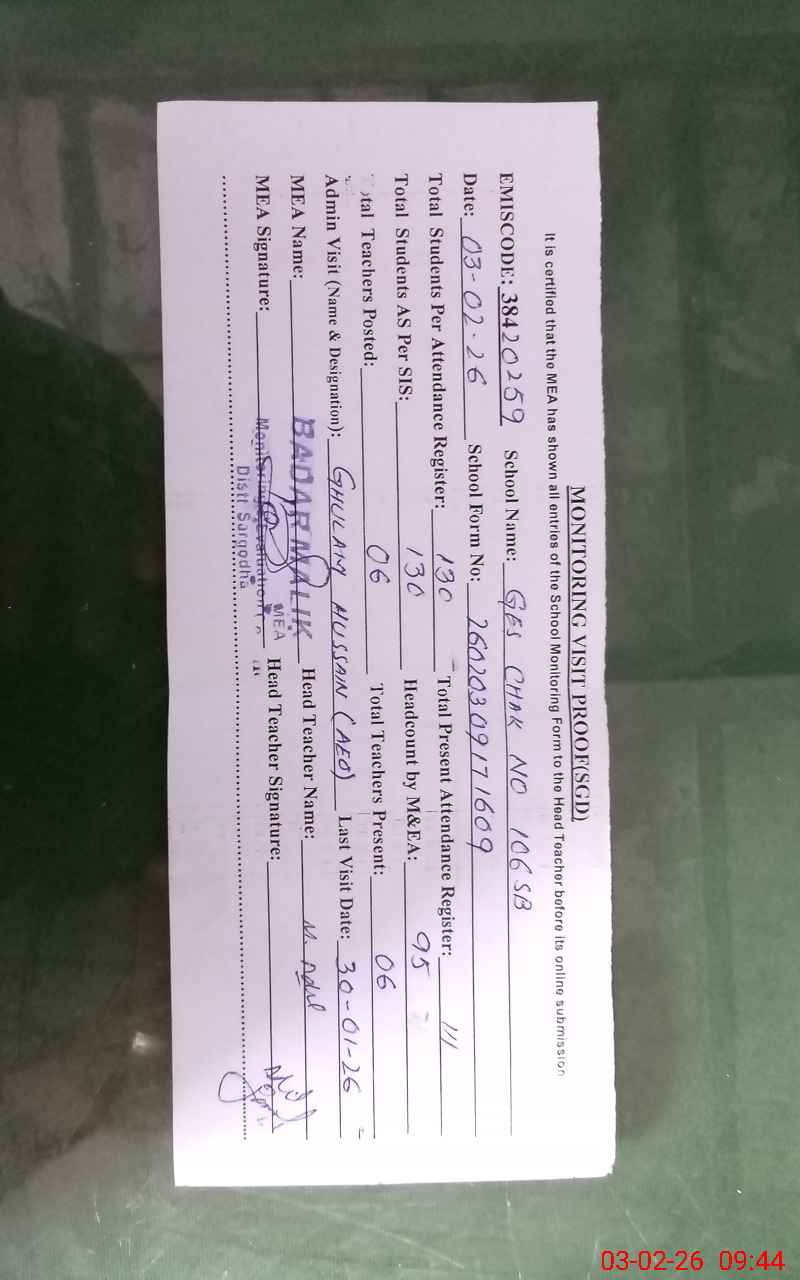 MONITORING VISIT PROOF(SGD)
It is certified that the MEA has shown all entries of the School Monitoring Form to the Head Teacher before its online submission
EMISCODE: 38420259 School Name: GES CHAK NO 106 SB
Date: 03-02-26 School Form No: 26020309171609
Total Students Per Attendance Register: 130 Total Present Attendance Register: 111
Total Students AS Per SIS: 130 Headcount by M&EA: 95
Total Teachers Posted: 06 Total Teachers Present: 06
Admin Visit (Name & Designation): GHULAM HUSSAIN (AEO) Last Visit Date: 30-01-26
MEA Name: BADAR MALIK Head Teacher Name: M. Adil
MEA
MEA Signature: Monitoring Evaluation Head Teacher Signature:
Distt Sargodha
03-02-26 09:44